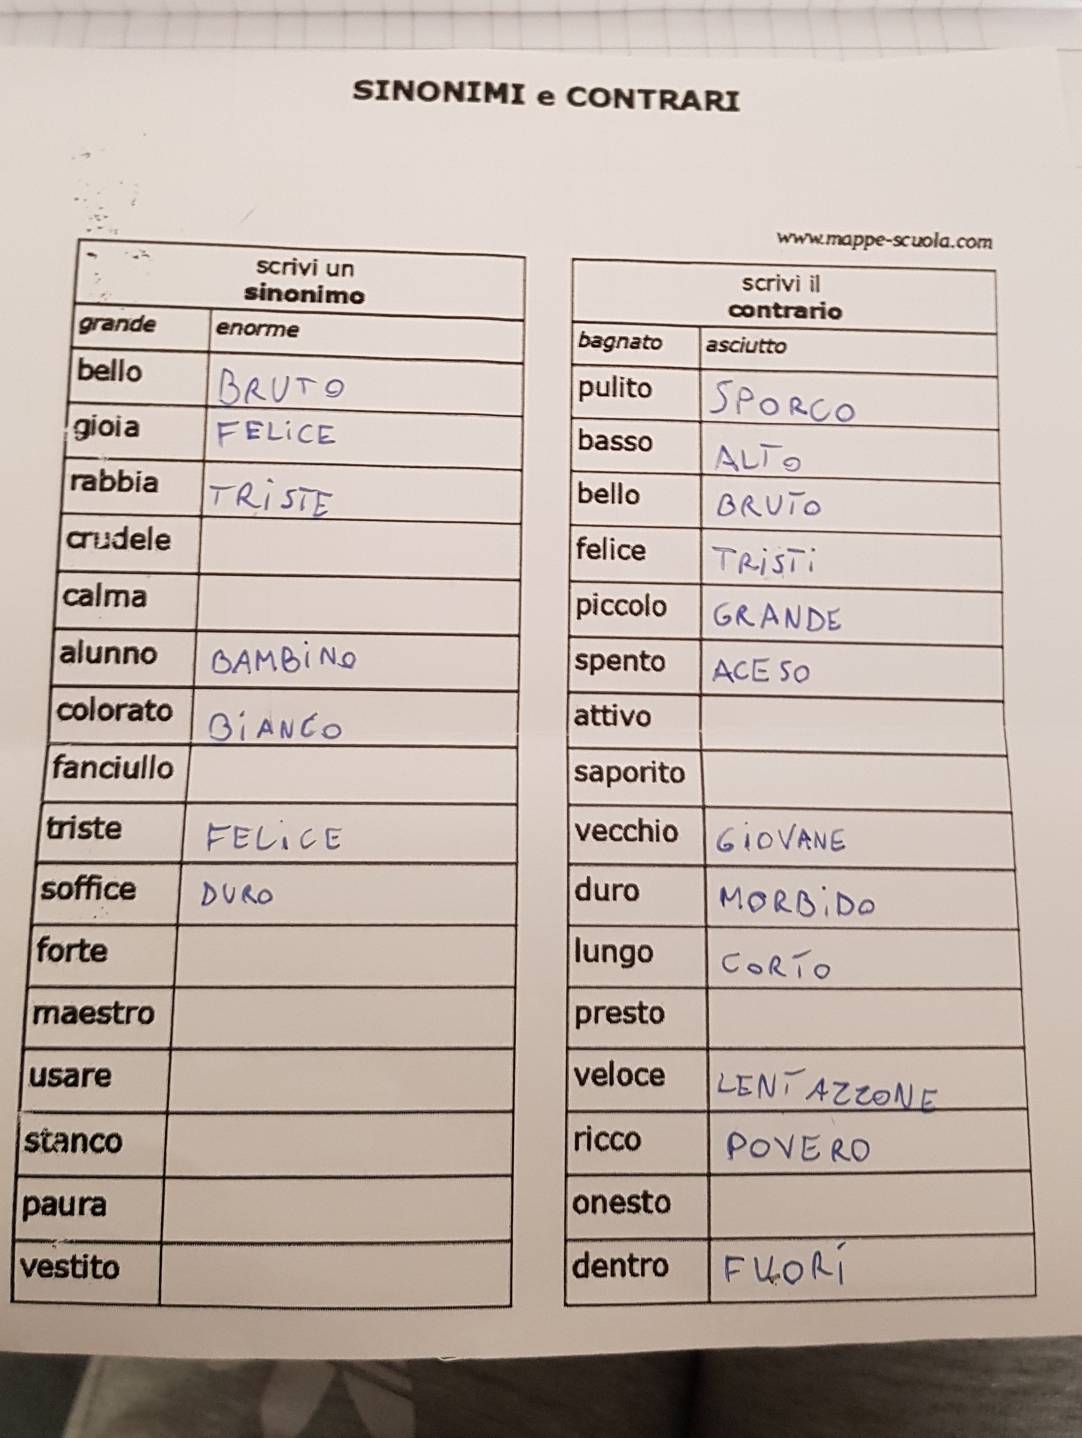 SINONIMI e CONTRARI
www.mappe-scuola.com
scrivi un
sinonimo
grande enorme
bello BRUTO
gioia FELiCE
rabbia TRiSTE
crudele
calma
alunno BAMBiNO
colorato BiANCO
fanciullo
triste FELiCE
soffice DURO
forte
maestro
usare
stanco
paura
vestito
scrivi il
contrario
bagnato asciutto
pulito SPORCO
basso ALTO
bello BRUTO
felice TRiSTi
piccolo GRANDE
spento ACESO
attivo
saporito
vecchio GiOVANE
duro MORBiDO
lungo CORTO
presto
veloce LENTAZZONE
ricco POVERO
onesto
dentro FUORi